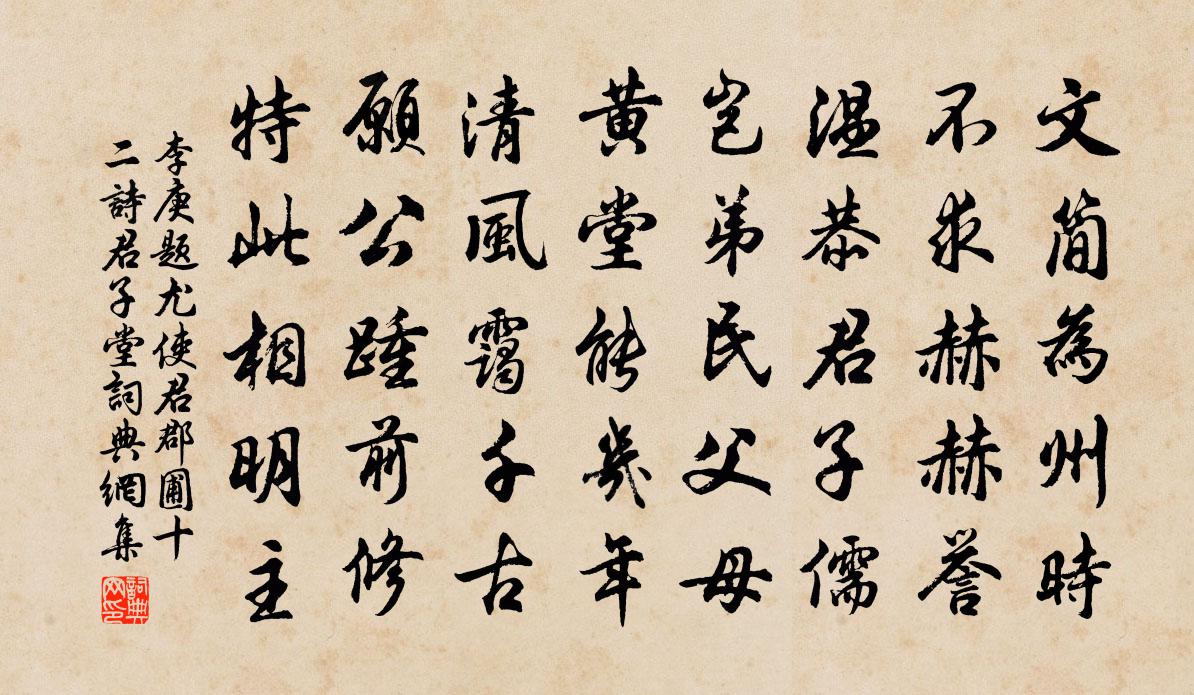 文简為州時
不求赫赫譽
溫恭君子儒
豈弟民父母
黄堂能幾年
清風靄千古
願公踵前修
持此相明主
李庚题尤使君郡圃十
二詩君子堂詞典網集
詞典
网印